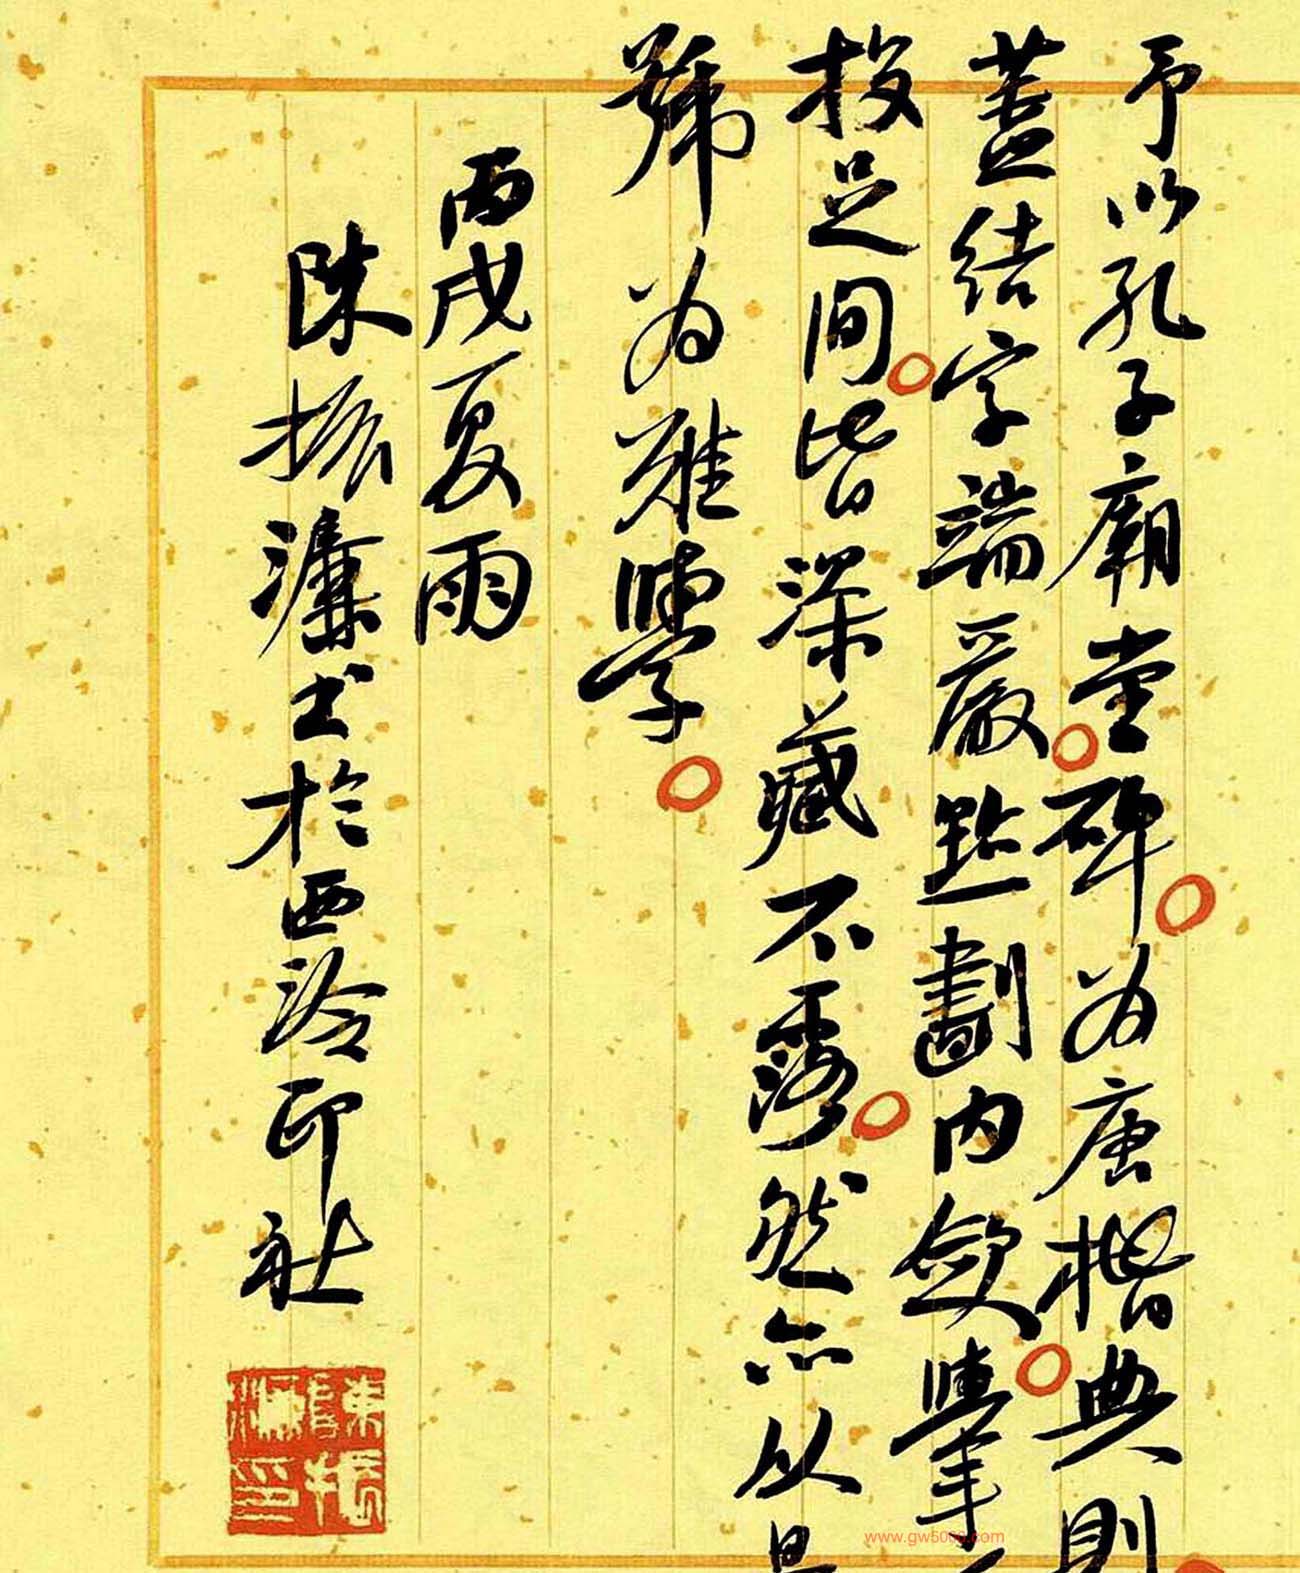 予以孔子廟堂碑為唐楷典則
蓋結字端嚴點劃內斂舉手
投足間皆深藏不露然亦以是
號為難學
丙戌夏雨
陳振濂書於西泠印社
陳振濂印
www.gw5000.com